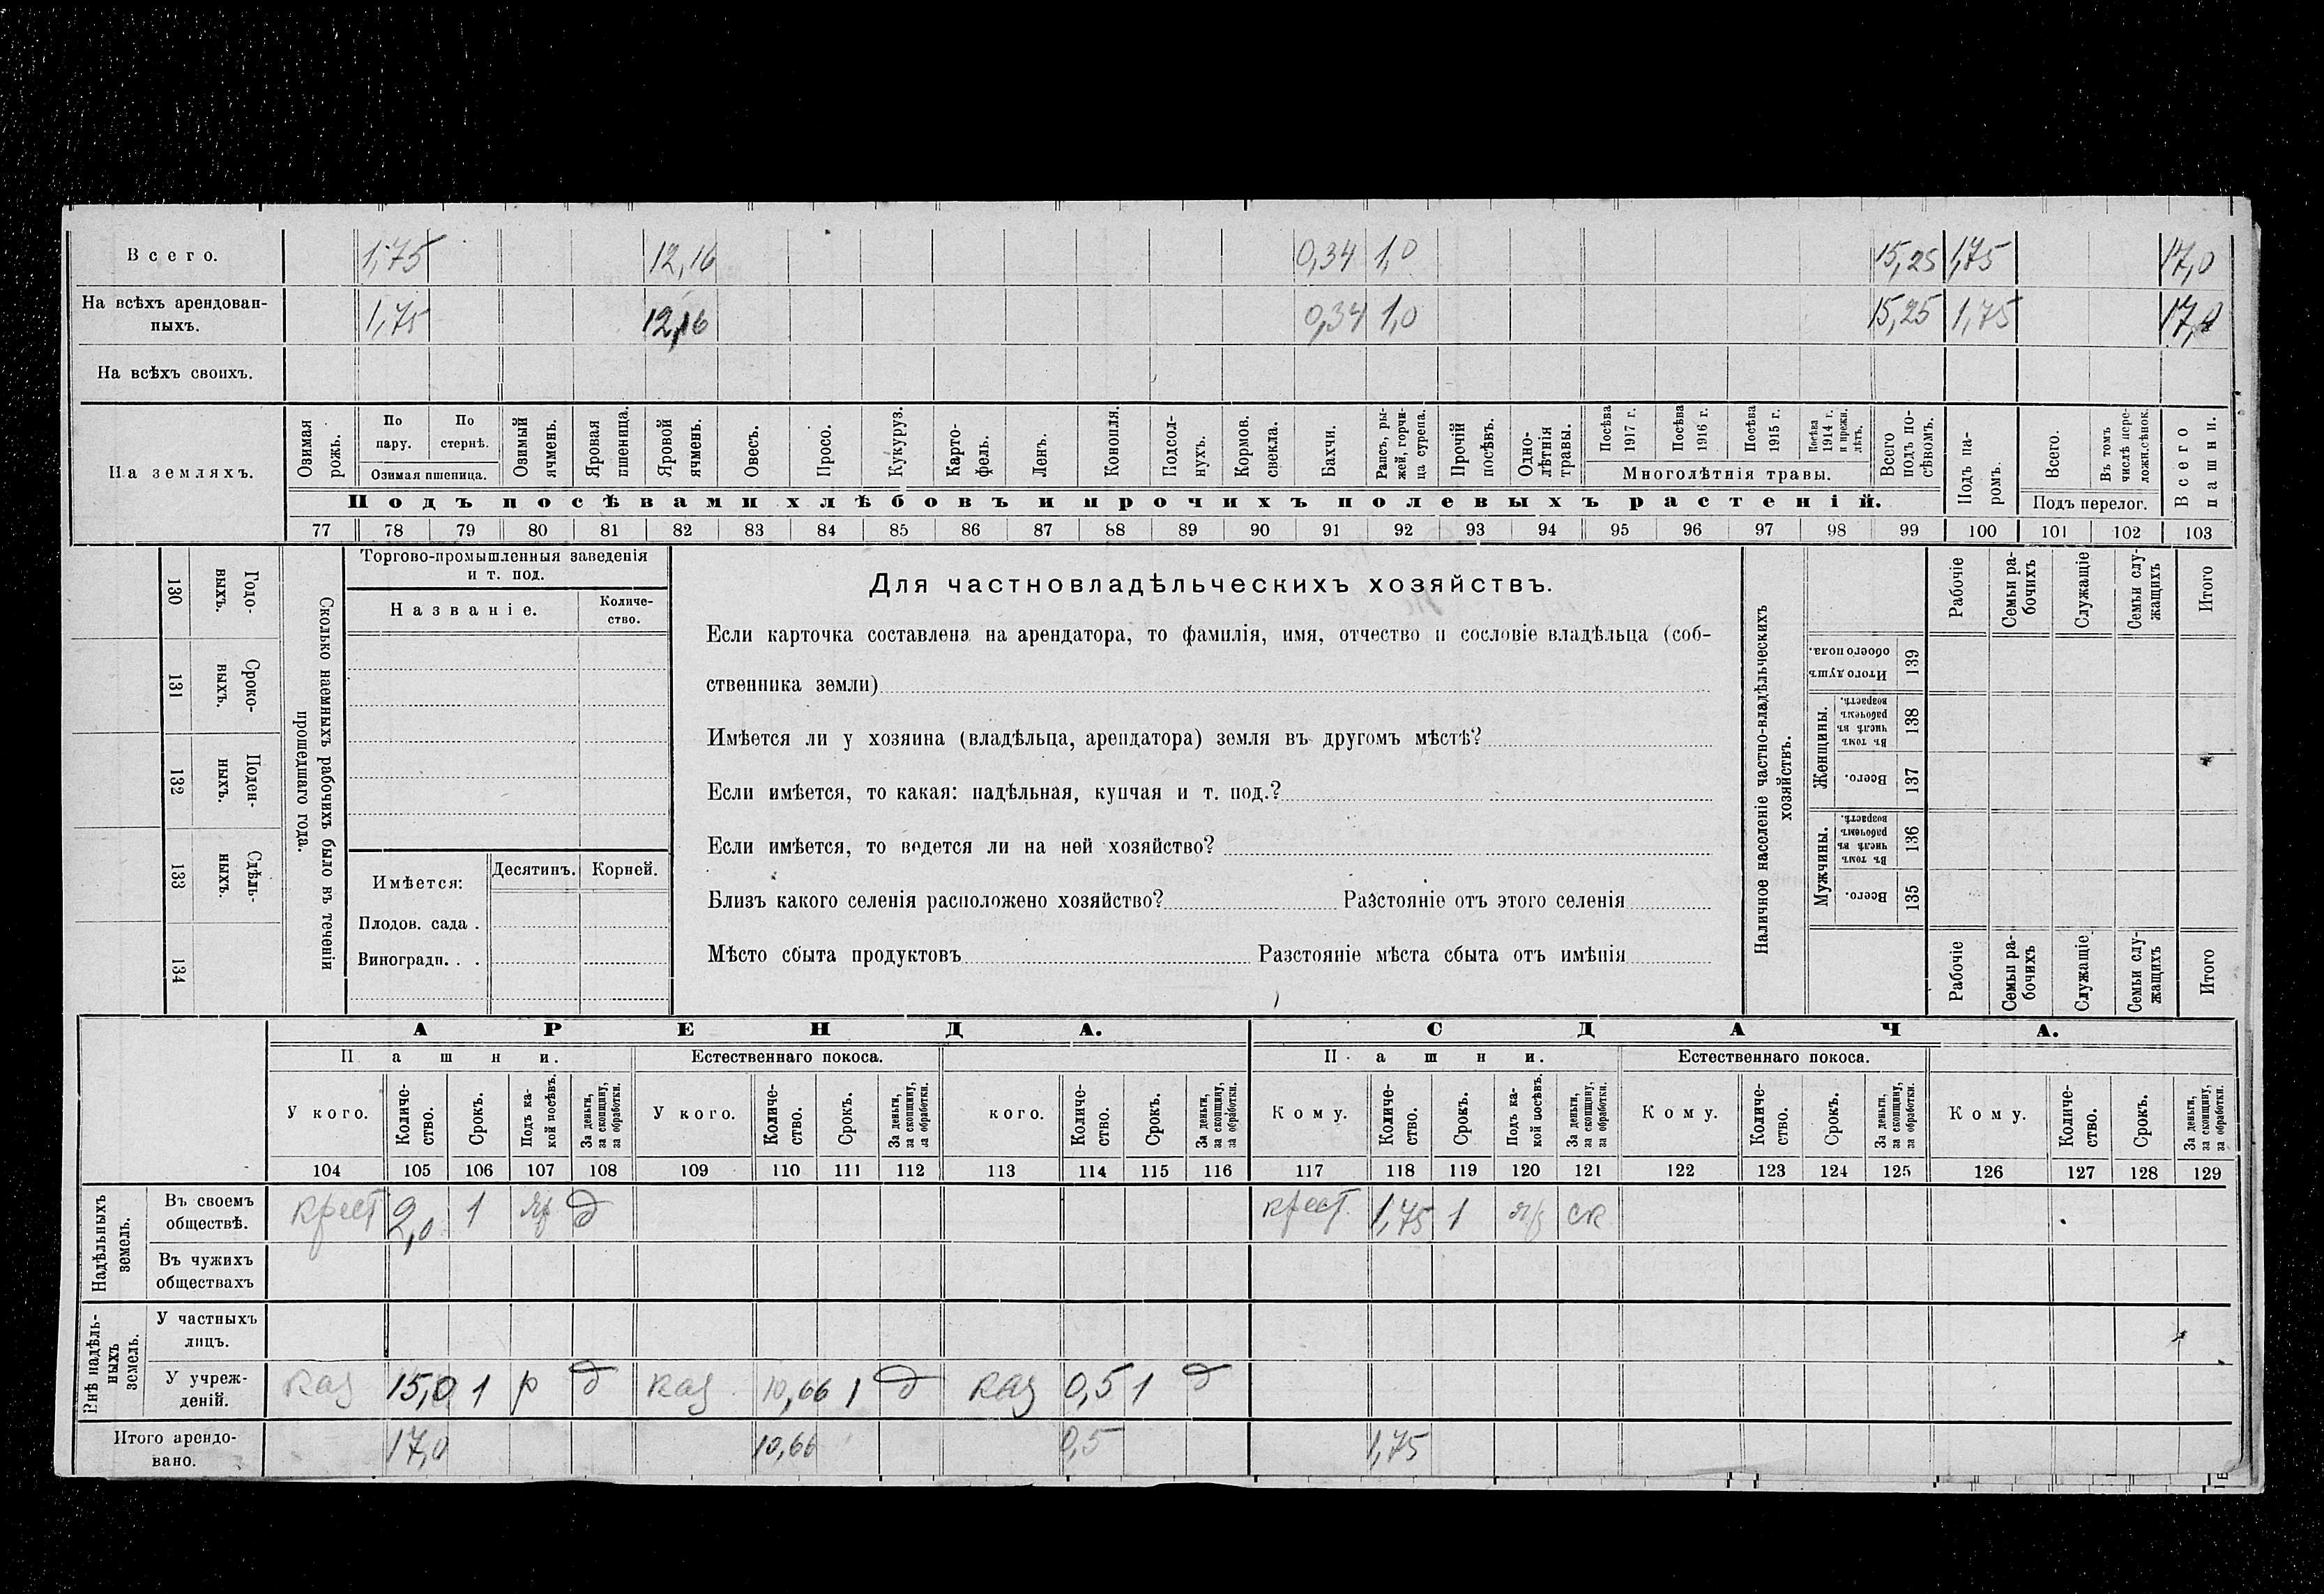 Всего. 1,75 12,16 0,34 1,0 15,25 1,75 17,0
На всѣхъ арендован-
ныхъ. 1,75 12,16 0,34 1,0 15,25 1,75 17,0
На всѣхъ своихъ.
На земляхъ.
Озимая рожь.
По пару.
По стернѣ.
Озимая пшеница.
Озимый ячмень.
Яровая пшеница.
Яровой ячмень.
Овесъ.
Просо.
Кукуруз.
Карто-
фель.
Ленъ.
Конопля.
Подсол-
нухъ.
Кормов. свекла.
Бахчи.
Рапсъ, ры-
жей, горчи-
ца сурепа.
Прочій посѣвъ.
Одно-
лѣтнія травы.
Посѣва 1917 г.
Посѣва 1916 г.
Посѣва 1915 г.
Посѣва 1914 г. и прежн. лѣтъ.
Многолѣтнія травы.
Всего подъ по-
сѣвомъ.
Подъ па-
ромъ.
Всего.
Въ томъ числѣ пере-
ложн.сѣнок.
Подъ перелог.
Всего пашни.
Подъ посѣвами хлѣбовъ и прочихъ полевыхъ растеній.
77 78 79 80 81 82 83 84 85 86 87 88 89 90 91 92 93 94 95 96 97 98 99 100 101 102 103
130 Годо-
выхъ.
131 Сроко-
ныхъ.
132 Поден-
ныхъ.
133 Сдѣль-
ныхъ.
134
Сколько наемныхъ рабочихъ было въ теченіи
прошедшаго года.
Торгово-промышленныя заведенія
и т. под.
Названіе.
Количе-
ство.
Имѣется: Десятинъ. Корней.
Плодов. сада .
Виноградн. . .
Для частновладѣльческихъ хозяйствъ.
Если карточка составлена на арендатора, то фамилія, имя, отчество и сословіе владѣльца (соб-
ственника земли)
Имѣется ли у хозяина (владѣльца, арендатора) земля въ другомъ мѣстѣ?
Если имѣется, то какая: надѣльная, купчая и т. под.?
Если имѣется, то ведется ли на ней хозяйство?
Близъ какого селенія расположено хозяйство? Разстояніе отъ этого селенія
Мѣсто сбыта продуктовъ Разстояніе мѣста сбыта отъ имѣнія
Наличное населеніе частно-владѣльческихъ
хозяйствъ.
Рабочіе
Семьи ра-
бочихъ
Служащіе
Семьи слу-
жащихъ
Итого
Итого душъ обоего пола. 139
Женщины.
Въ томъ числѣ въ рабочемъ возрастѣ. 138
Всего. 137
Мужчины.
Въ томъ числѣ въ рабочемъ возрастѣ. 136
Всего. 135
Рабочіе
Семьи ра-
бочихъ
Служащіе
Семьи слу-
жащихъ
Итого
АРЕНДА. СДАЧА.
Пашни. Естественнаго покоса. Пашни. Естественнаго покоса.
У кого. Количе-
ство. Срокъ. Подъ ка-
кой посѣвъ. За деньги, за скопщину, за обработки.
У кого. Количе-
ство. Срокъ. За деньги, за скопщину, за обработки.
кого. Количе-
ство. Срокъ. За деньги, за скопщину, за обработки.
Кому. Количе-
ство. Срокъ. Подъ ка-
кой посѣвъ. За деньги, за скопщину, за обработки.
Кому. Количе-
ство. Срокъ. За деньги, за скопщину, за обработки.
Кому. Количе-
ство. Срокъ. За деньги, за скопщину, за обработки.
104 105 106 107 108 109 110 111 112 113 114 115 116 117 118 119 120 121 122 123 124 125 126 127 128 129
Надѣльныхъ
земель.
Въ своемъ
обществѣ. крест 2,0 1 яр д крест. 1,75 1 яр ск
Въ чужихъ
обществахъ
Внѣ надѣль-
ныхъ
земель.
У частныхъ
лицъ.
У учреж-
деній. каз 15,0 1 р д каз 10,66 1 д каз 0,5 1 д
Итого арендо-
вано. 17,0 10,66 0,5 1,75